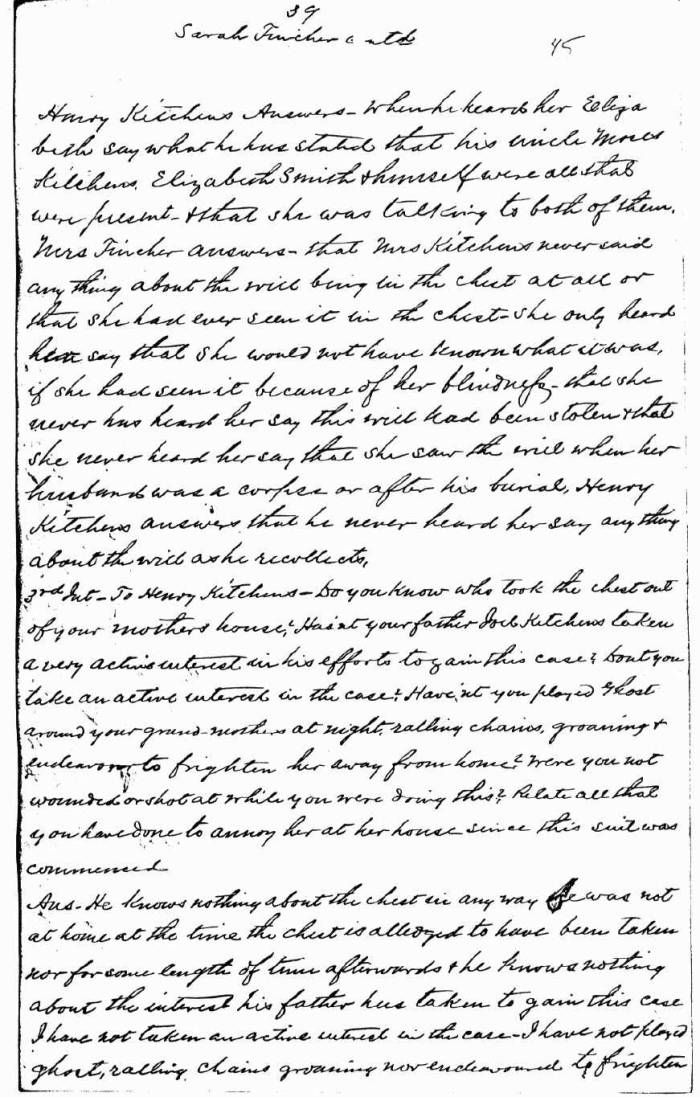 39
Sarah Fincher contd
45
Henry Kitchens Answers - When he heard her Eliza
beth say what he has stated that his uncle Moses
Kitchens, Elizabeth Smith & himself were all that
were present - & that she was talking to both of them.
Mrs Fincher answers - that Mrs Kitchens never said
any thing about the will being in the chest at all or
that she had ever seen it in the chest - she only heard
her say that she would not have known what it was,
if she had seen it because of her blindness - that she
never has heard her say this will had been stolen & that
she never heard her say that she saw the will when her
husband was a corpse or after his burial, Henry
Kitchens answers that he never heard her say any thing
about the will as he recollects,
3rd Int - To Henry Kitchens - Do you know who took the chest out
of your mothers house? Hasnt your father Joel Kitchens taken
a very active interest in his efforts to gain this case? Dont you
take an active interest in the case? Have'nt you played Ghost
around your grand-mothers at night, ralling chains, groaning &
endeavor to frighten her away from home? Were you not
wounded or shot at while you were doing this? Relate all that
you have done to annoy her at her house since this suit was
commenced
Ans - He knows nothing about the chest in any way He was not
at home at the time the chest is alledged to have been taken
nor for some length of time afterwards & he knows nothing
about the interest his father has taken to gain this case
I have not taken an active interest in the case - I have not played
ghost, ralling chains groaning nor endeavoured to frighten